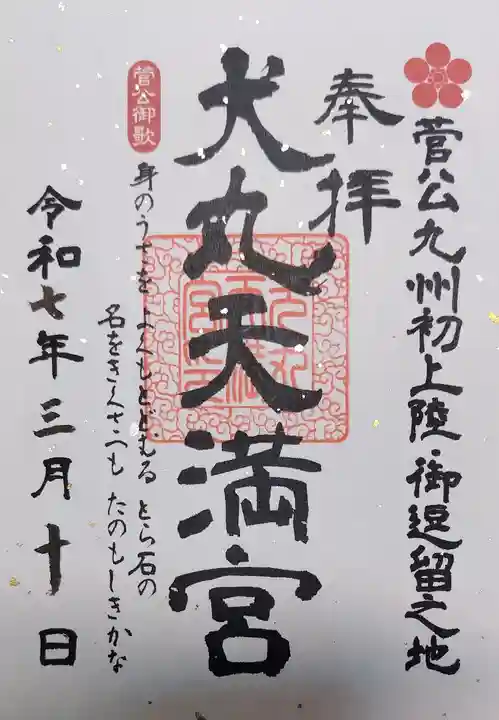 菅公九州初上陸・御逗留之地
奉拝
犬丸天満宮
菅公御歌
身のうさを よくもとどむる とら石の
名をきくさへも たのもしきかな
令和七年三月十日